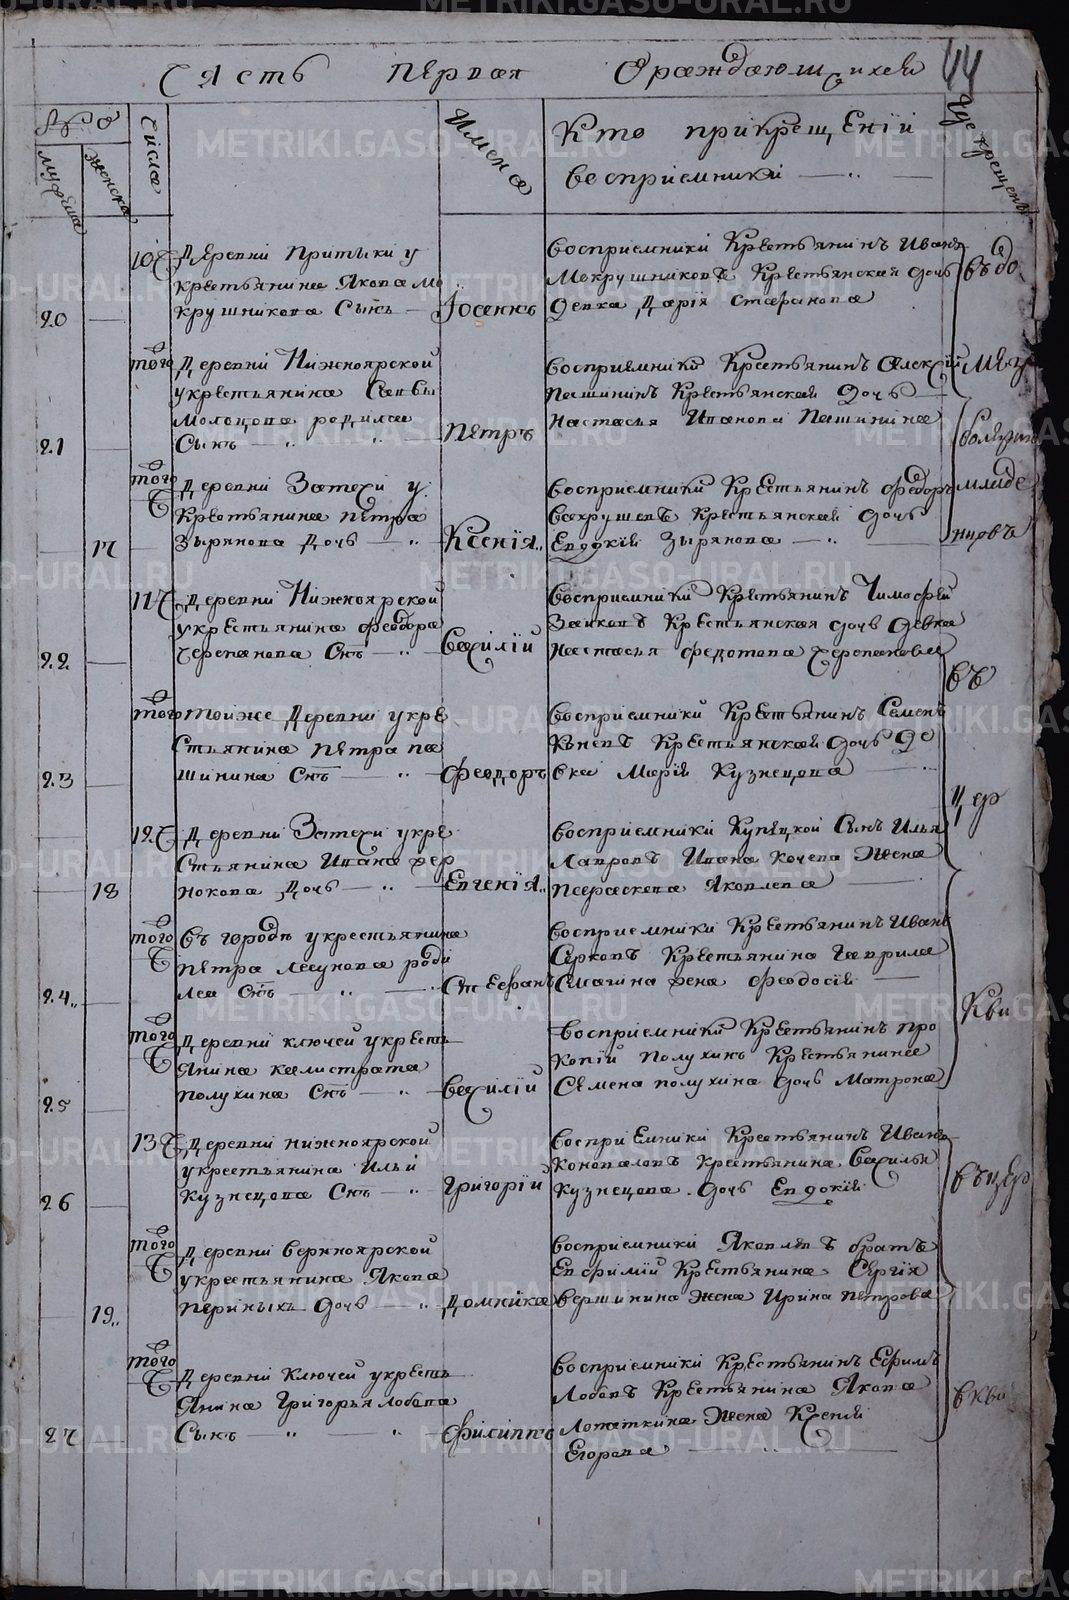 Часть Первая О раждающихся 44
Число
мужеска
женска
Числа
Имена
Кто прикрещении
восприемники
Где крещены
20
10
Деревни Притыки у
крестьянина Якова Мо
крушникова Сынъ
Иосифъ
восприемники Крестьянинъ Иванъ
Мокрушниковъ Крестьянская дочь
девка Дарія Стефанова
въ до
21
того
Деревни Нижноярской
укрестьянина Саввы
Молодова родился
Сынъ
Петръ
восприемники Крестьянинъ Алексій
Пашнинъ Крестьянская Дочь
Настасья Иванова Пашнина
мах
болезни
17
того
Деревни Затехи у
Крестьянина Петра
Зырянова Дочь
Ксенія
восприемники Крестьянинъ Федоръ
Крестьянская дочь
Евдокия Зырянова
младе
нцовъ
22
11
Деревни Нижноярской
укрестьянина Феодора
Черепанова Снъ
Василій
восприемники Крестьянинъ Тимофей
Заиковъ Крестьянская дочь Девка
Настасья Федотова Черепанова
23
того
тойже Деревни укре
стьянина Петра Па
шнина Снъ
Феодоръ
восприемники Крестьянинъ Семенъ
Крестьянская дочь Де
вка Марія Кузнецова
въ
цер
18
12
Деревни Затехи укре
стьянина Ивана Чер
нокова Дочь
Евгенія
восприемники Купецкой Сынъ Илья
Лавровъ Ивана Кочева Жена
Параскева Яковлева
24
того
Въ городе укрестьянина
Петра Лесунова роди
лся Снъ
Стефанъ
восприемники Крестьянинъ Иванъ
Сурковъ Крестьянина Гаврила
Смагина жена Феодосія
Кви
25
того
Деревни ключей укресть
янина Калистрата
Полухина Снъ
Василій
восприемники Крестьянинъ Про
копій Полухинъ Крестьянина
Семена Полухина дочь Матрона
26
13
Деревни нижноярской
укрестьянина Ильи
Кузнецова Снъ
Григорій
восприемники Крестьянинъ Иванъ
Коноваловъ крестьянина Василья
Кузнецова дочь Евдокия
въ цер
19
того
Деревни верхноярской
укрестьянина Якова
Периныхъ дочь
Домника
восприемники Яковлевъ братъ
Евфимий Крестьянина Сергія
Вершинина Жена Ирина Петрова
27
того
Деревни Ключей укресть
янина Григорья Лобова
Сынъ
Филиппъ
восприемники Крестьянинъ Ефимъ
Лобовъ Крестьянина Якова
Лопаткина Жена Ксенія
Егорова
в Кви
METRIKI.GASO-URAL.RU